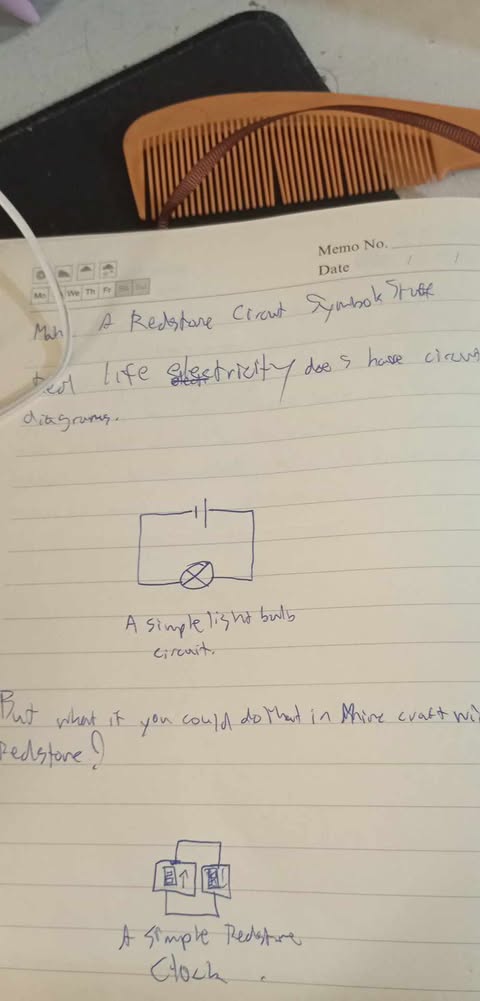 Memo No.
Date / /
Mo We Th Fr Sa Su
A Redstone Circut Symbols Stuff
Real life electricity does have circuit
diagrams.
A simple light bulb
circuit.
But what if you could do that in Minecraft wi
Redstone?
A simple Redstone
Clock.